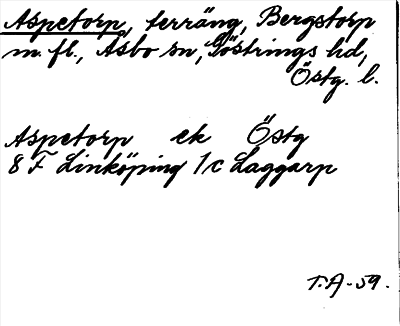 Aspetorp, terräng, Bergstorp
m. fl., Åsbo sn, Göstrings hd,
Östg. l.
Aspetorp ek Östg
8 F Linköping 1c Laggarp
T.A-59.